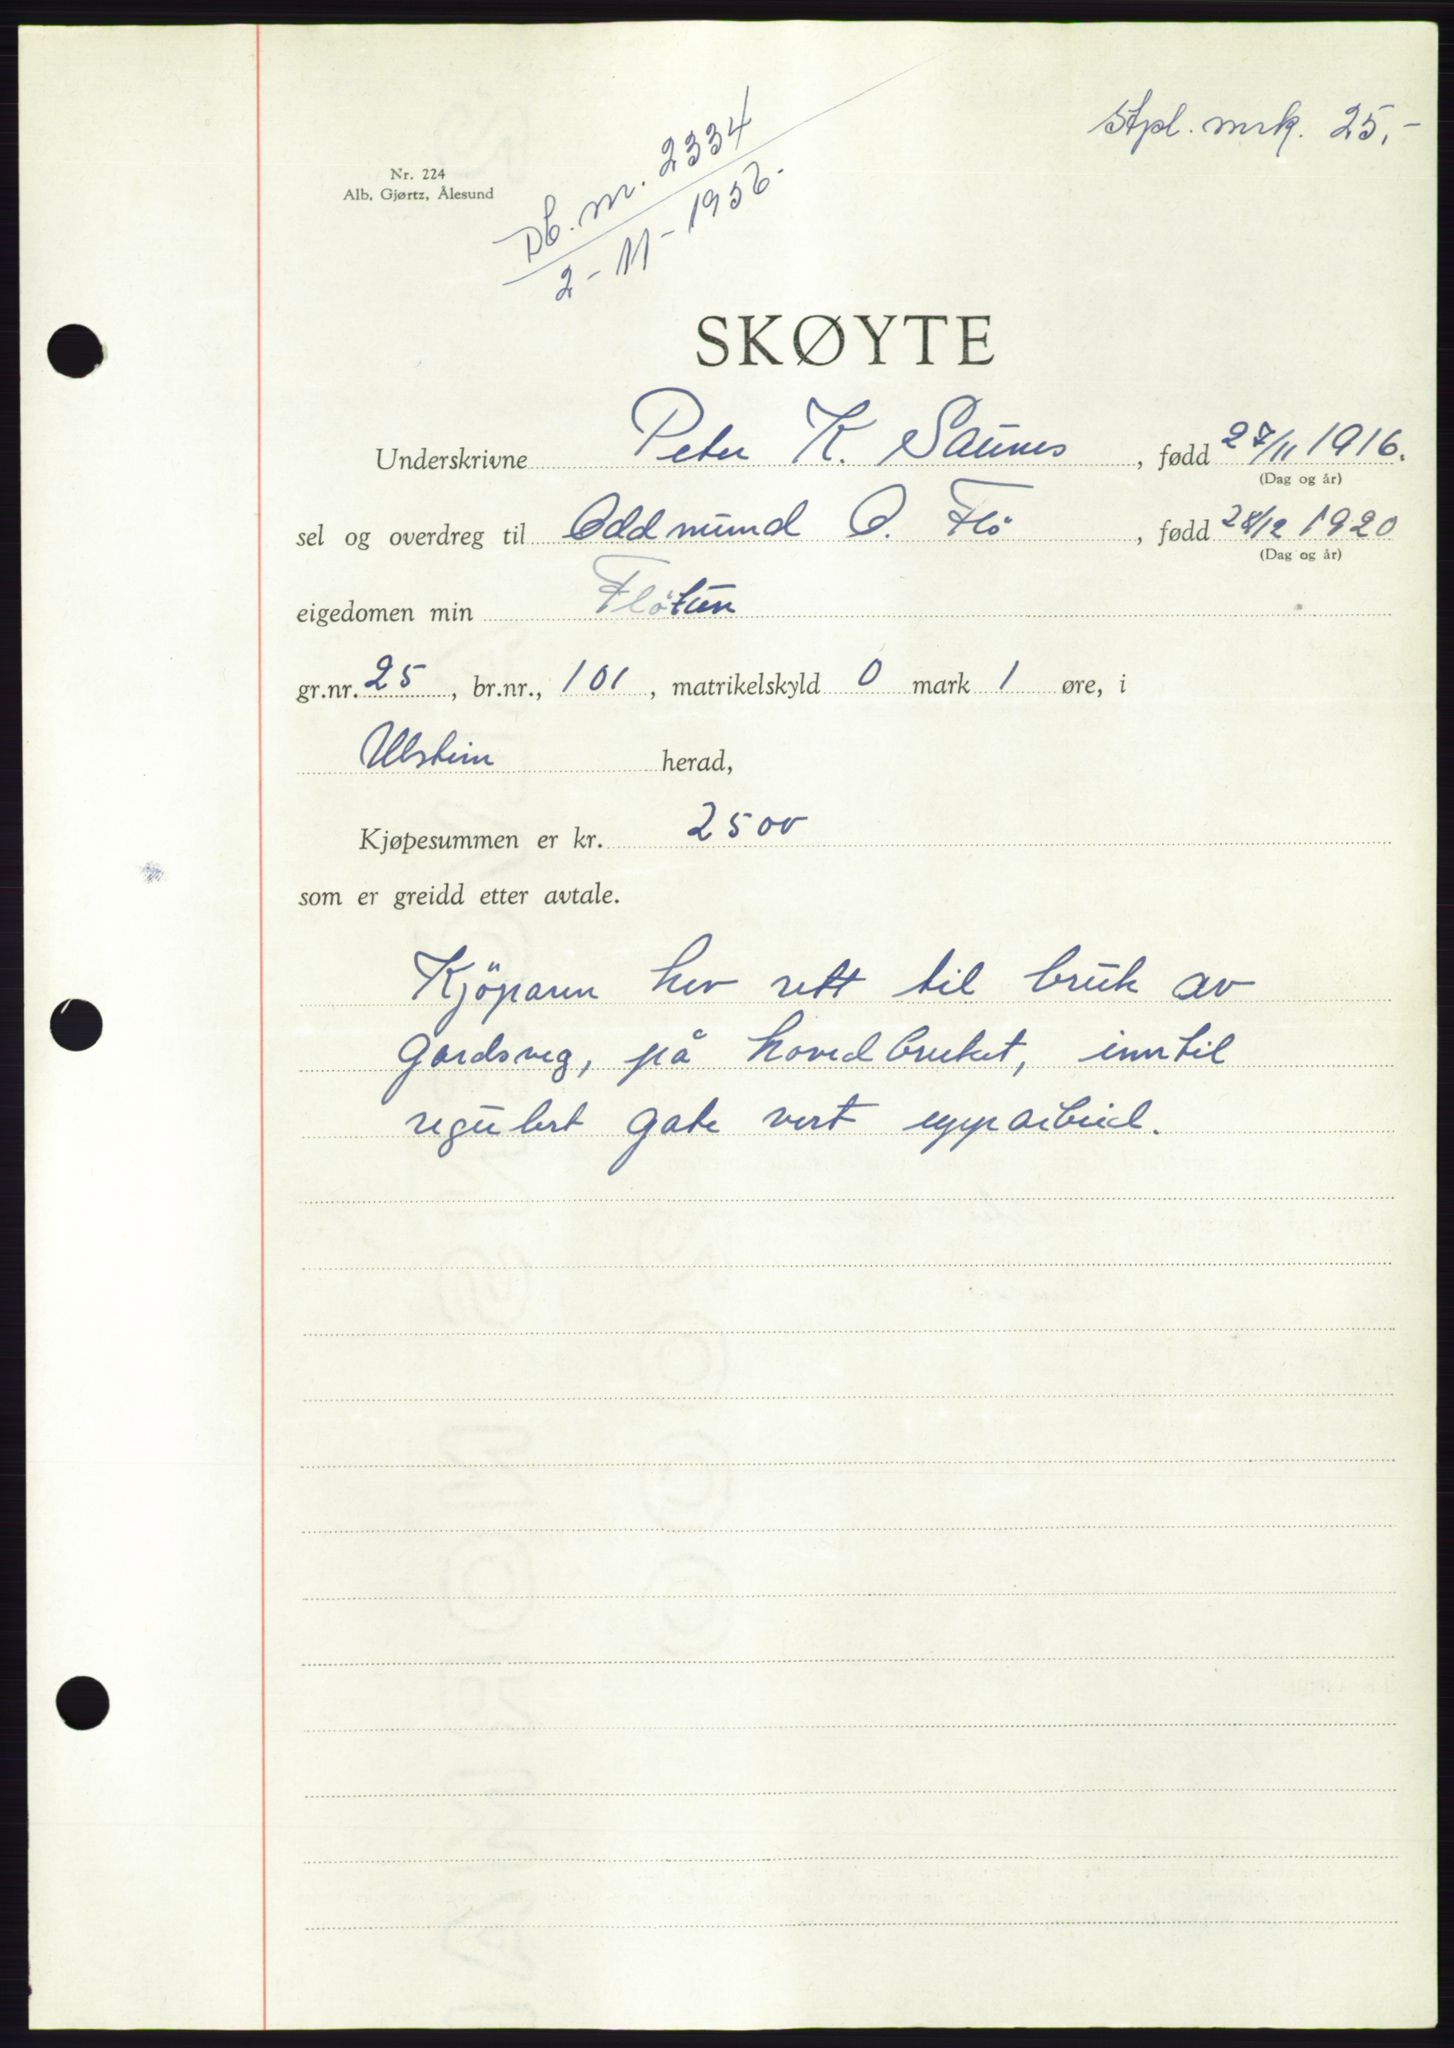 Stpl. mrk. 25,-
Nr. 224
Alb. Gjørtz, Ålesund
Db. nr. 2334
2-11-1956.
SKØYTE
Underskrivne Peter K. Saunes, fødd 27/11 1916.
(Dag og år)
sel og overdreg til Oddmund O. Flö, fødd 28/12 1920
(Dag og år)
eigedomen min Flötun
gr.nr. 25, br.nr., 101, matrikelskyld 0 mark 1 øre, i
Ulstein herad,
Kjøpesummen er kr. 2500
som er greidd etter avtale.
Kjöparen hev rett til bruk av
gardsveg, på hovedbruket, inntil
regulert gate vert upparbeid.